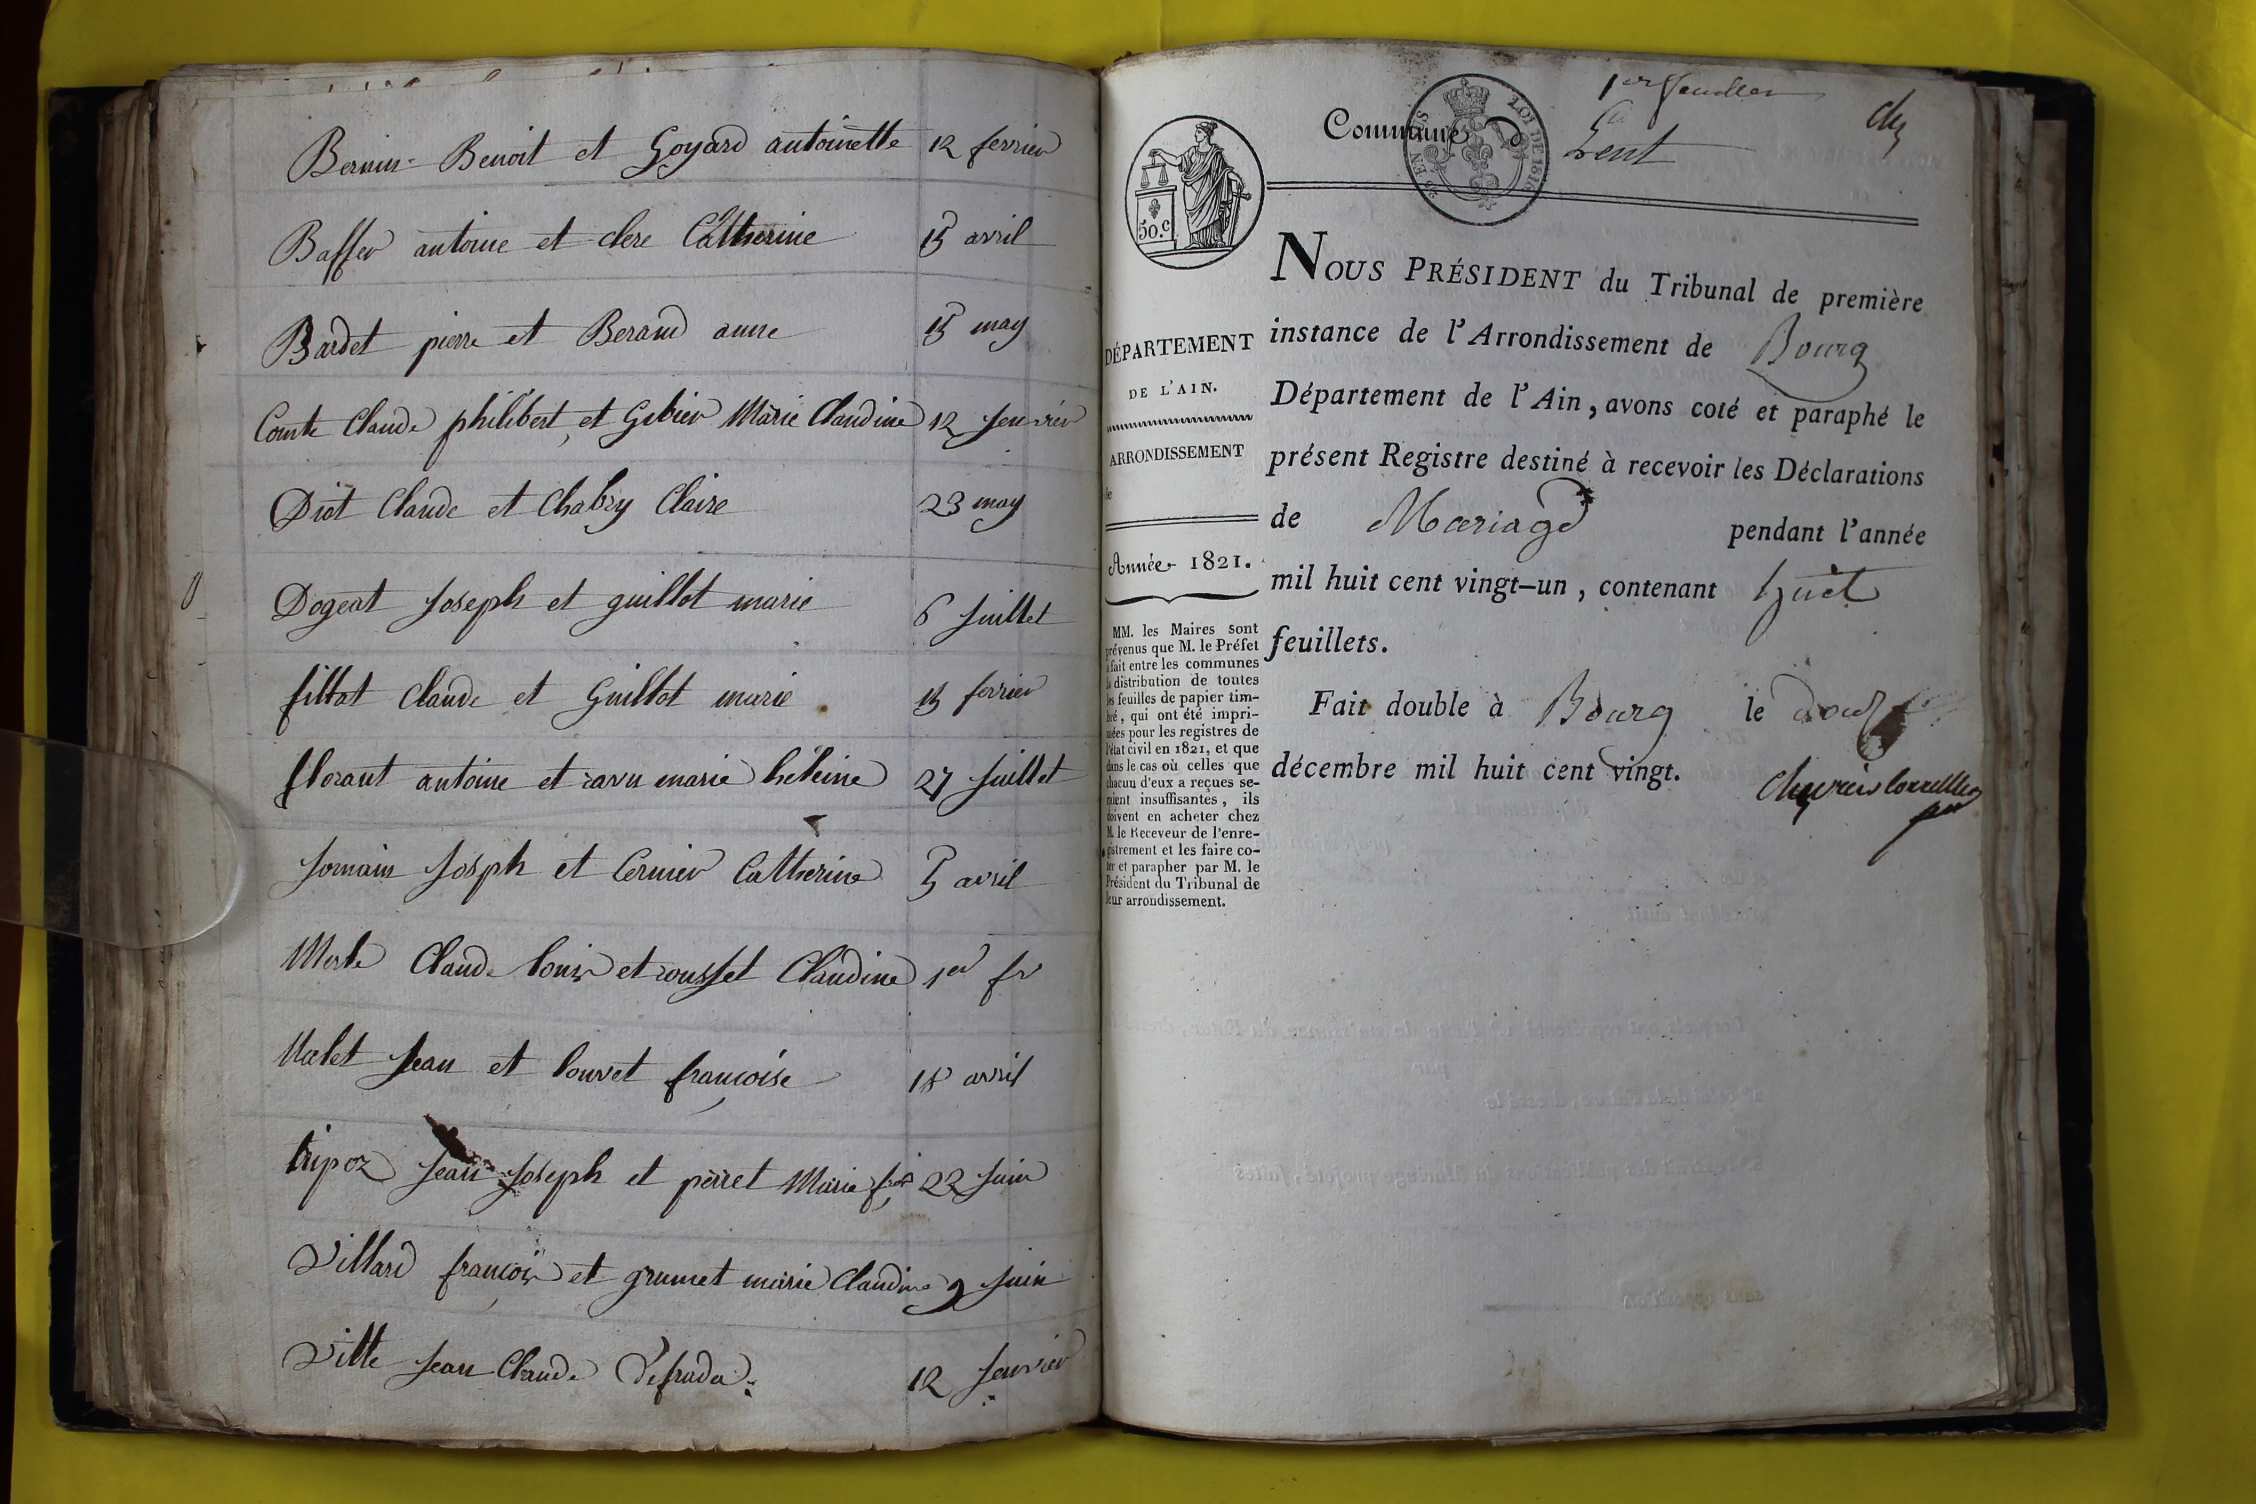 Bernin Benoit et Goyard antoinette 12 fevrier
Baffer antoine et clerc Catherine 15 avril
Bardet pierre et Beraud anne 15 may
Comte Claude philibert et Gibier Marie Claudine 12 Jenvier
Diot Claude et Chabry Claire 23 may
Dogeat Joseph et guillot marie 6 Juillet
fillot Claude et Guillot marie 15 fevrier
florant antoine et ravu marie héléine 27 Juillet
Jomain Josph et Cernier Catherine 5 avril
Merle Claude louis et rousset Claudine 1er fr
Nalet Jean et louvet francoise 18 avril
tripoz Jean Joseph et perret Marie fse 22 Juin
Villard francois et grumet marie Claudine 9 Juin
Vitte Jean Claude Defrada 12 Jenvier
1er feuillet
Commune de Lent
LOI DE 1816
50.c
NOUS PRÉSIDENT du Tribunal de première
instance de l'Arrondissement de Bourg
Département de l'Ain, avons coté et paraphé le
présent Registre destiné à recevoir les Déclarations
de Mariage pendant l'année
mil huit cent vingt-un, contenant huit
feuillets.
Fait double à Bourg le
décembre mil huit cent vingt.
DÉPARTEMENT
DE L'AIN.
ARRONDISSEMENT
de
Année 1821.
MM. les Maires sont
prévenus que M. le Préfet
a fait entre les communes
la distribution de toutes
les feuilles de papier tim-
bré, qui ont été impri-
mées pour les registres de
l'état civil en 1821, et que
dans le cas où celles que
chacun d'eux a reçues se-
raient insuffisantes, ils
doivent en acheter chez
M. le Receveur de l'enre-
gistrement et les faire co-
ter et parapher par M. le
Président du Tribunal de
leur arrondissement.